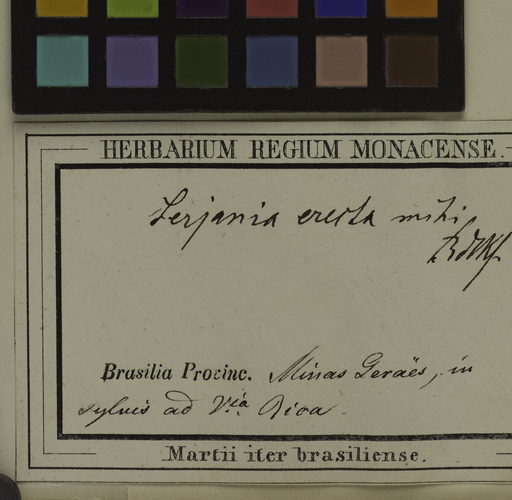 HERBARIUM REGIUM MONACENSE.
Serjania erecta mihi
Rdlkf
Brasilia Provinc. Minas Geraës, in
sylvis ad V.ia Rica.
Martii iter brasiliense.